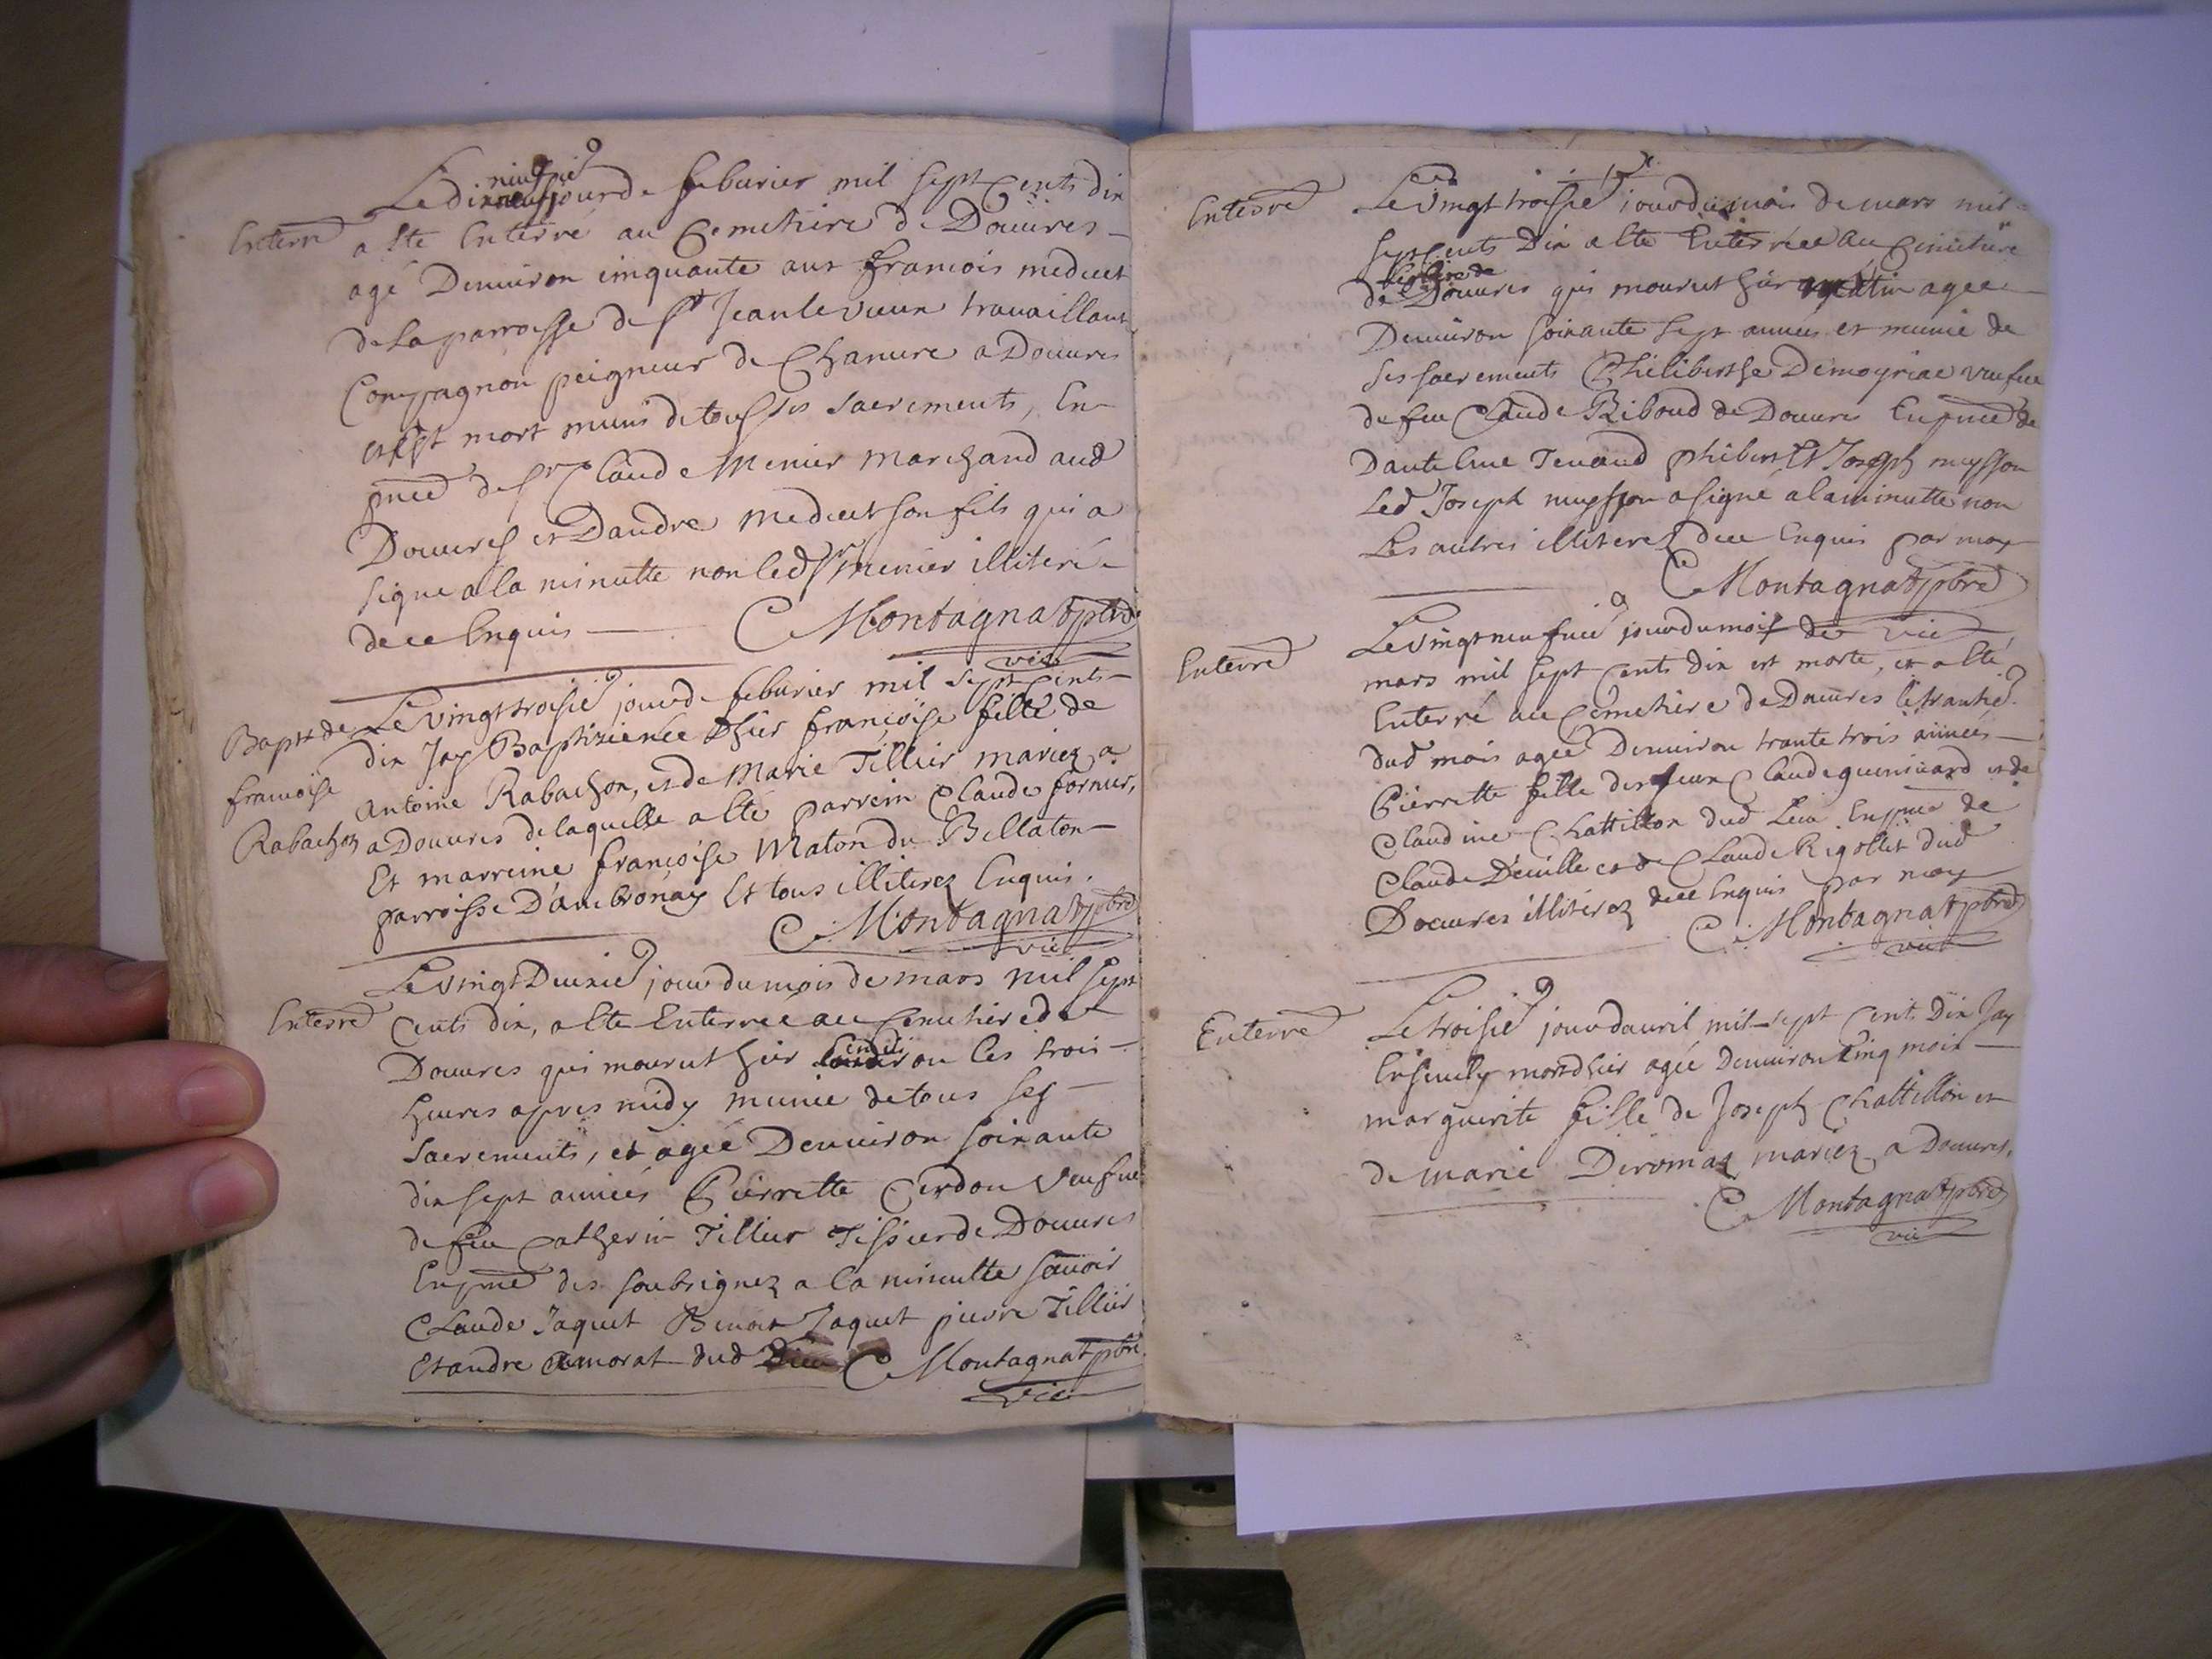 Le dix neufvie jour de feburier mil sept cents dix
Enterré a esté Enterré au Cemetiere de Douures
agé Denuiron cinquante ans francois meduet
de la parroisse de St Jean le vieux travaillant
Compagnon peigneur de Chanure a Douures
et est mort munis de tous ses sacrements, En
pnce de sr Claude Menier marchand aud
Douures et Dandre meduet son fils qui a
signe a la minutte non led sr menier illiteré
de ce Enquis C Montagnat pbre
vic
Bapt de Le vingt troisie jour de feburier mil sept cents
dix Jay Baptizé née Dhier françoise fille de
francoise Antoine Rabachon, et de Marie Tillier mariez a
Rabachon a Douures de laquelle a esté parrein Claude fornier,
Et marreine francoise Maton du Bellaton
parroisse D'ambronay Et tous illiterez Enquis.
C Montagnat pbre
vic
Le vingt Deuxie jour du mois de mars mil sept
Enterré Cents dix, a esté Enterree au Cemetiere de
Douures qui mourut hier Enuiron les trois
heures apres midy munie de tous ses
sacrements, et agée Denuiron soixante
dix sept années Pierrette Cerdon veufue
de feu Catherin Tillier Tissier de Douures
En pnce des soubsignez a la minutte sauoir
Claude Jaquet Benoit Jaquet pierre Tillier
Et andre amorat dud Lieu C Montagnat pbre
vic
Enterré Le vingt troisie jour du mois de mars mil
sept cents Dix a esté Enterrée au Cimetiere
de Douures qui mourut hier matin agee
Denuiron soixante sept années et munie de
ses sacrements Philiberthe Demoyriac veufue
de feu Claude Riboud de Douures En pnce de
Dantelme Tenand philibert Et Joseph muysson
Led Joseph muysson a signé a la minutte non
Les autres illiterez de ce Enquis par moy
C Montagnat pbre
vic
Le vingt neufuie jour du mois de
Enterré mars mil sept cents dix est morte, et a esté
Enterré au Cemetiere de Douures le trantie
dud mois agée Denuiron trante trois années
Pierrette fille des feux Claude guenivard et de
Claudine Chattillon dud Lieu En pnce de
Claude Deuille et de Claude Rigollet dud
Douures illiterez de ce Enquis par moy
C Montagnat pbre
vic
Enterré Le troisie jour dauril mil sept cents Dix Jay
Ensevely mort dhier agée Denuiron Cinq mois
marguerite fille de Joseph Chattillon et
de marie Deromaz mariez a Douures.
C Montagnat pbre
vic